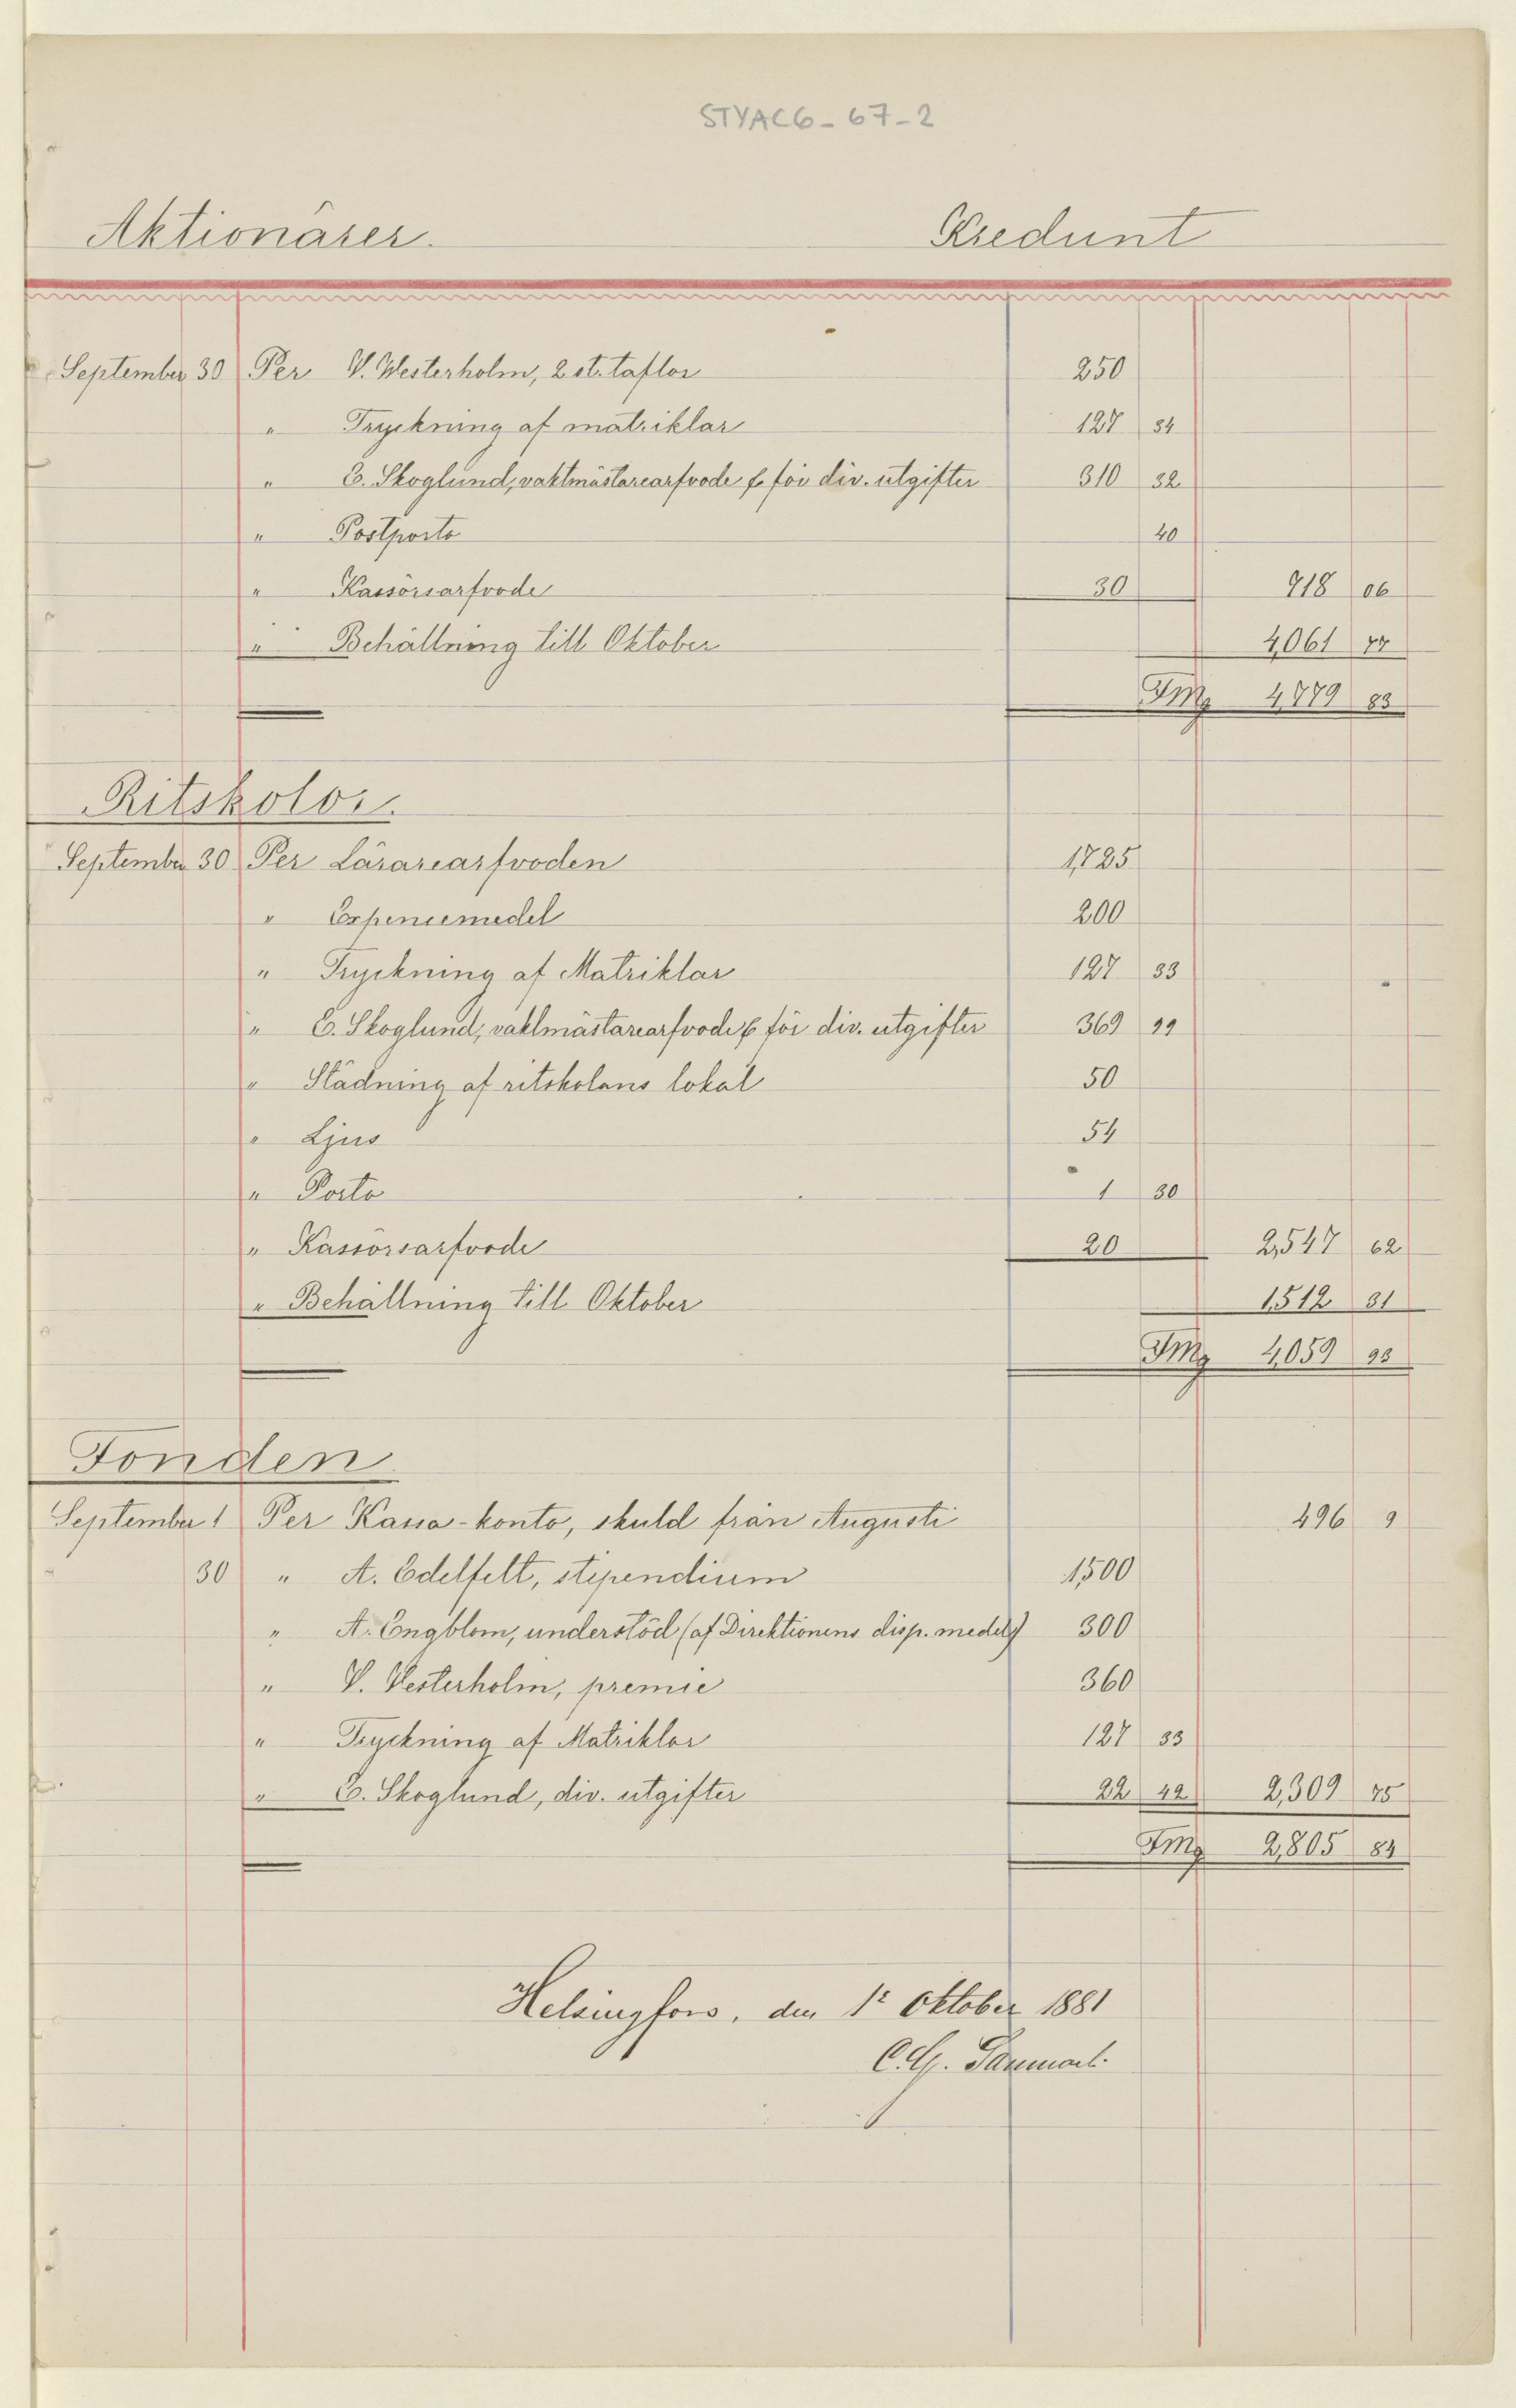 STYAC6-67-2
Aktionärer. Kredunt
September 30 Per V. Westerholm, 2 st. taflor 250
" Tryckning af matriklar 127 34
" E. Skoglund, vaktmästarearfvode & för div. utgifter 310 32
" Postporto 40
" Kassörsarfvode 30 718 06
" Behållning till Oktober 4,061 77
Fmg 4,779 83
Ritskolor.
September 30 Per Lärarearfvoden 1,725
" Expensemedel 200
" Tryckning af Matriklar 127 33
" E. Skoglund, vaktmästarearfvode & för div. utgifter 369 99
" Städning af ritskolans lokal 50
" Ljus 54
" Porto 1 30
" Kassörsarfvode 20 2,547 62
" Behållning till Oktober 1,512 31
Fmg 4,059 93
Fonden.
September 1 Per Kassa-konto, skuld från Augusti 496 9
30 " A. Edelfelt, stipendium 1,500
" A. Engblom, understöd (af Direktionens disp. medel) 300
" V. Westerholm, premie 360
" Tryckning af Matriklar 127 33
" E. Skoglund, div. utgifter 22 42 2,309 75
Fmg 2,805 84
Helsingfors, den 1e Oktober 1881
C. G.